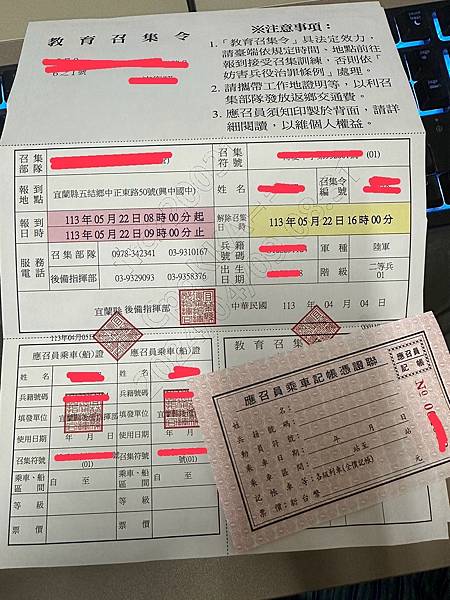 教育召集令
6之1號
※注意事項：
1.「教育召集令」具法定效力，
請臺端依規定時間、地點前往
報到接受召集訓練，否則依「
妨害兵役治罪條例」處理。
2. 請攜帶工作地證明等，以利召
集部隊發放返鄉交通費。
3. 應召員須知印製於背面，請詳
細閱讀，以維個人權益。
召集部隊
召集符號
(01)
報到地點
宜蘭縣五結鄉中正東路50號(興中國中)
姓名
召集令編號
報到日時
113年05月22日08時00分起
113年05月22日09時00分止
解除召集日時
113年05月22日16時00分
服務電話
召集部隊 0978-342341 03-9310167
後備指揮部 03-9329093 03-9358376
兵籍號碼
軍種 陸軍
出生日期
階級 二等兵01
宜蘭縣 後備指揮部
中華民國 113 年 04 月 04 日
113年04月05日
應召員乘車(船)證
姓名
兵籍號碼
填發單位 宜蘭縣後備指揮部
使用日期 年 月 日
召集符號
(01)
乘車、船區間 自 至
等級
票價
應召員乘車(船)證
姓名
兵籍號碼
填發單位 宜蘭縣
使用日期 年 月 日
召集符號
號(01)
乘車、船區間 自 至
等級
票價
應召員乘車記帳憑證聯
應召員記帳
No 0
姓名：
兵籍號碼：
動員符號：
乘車日期： 年 月 日
乘車區間： 站至 站
記帳車等：各級列車(全價記帳)
票價：新台幣 元